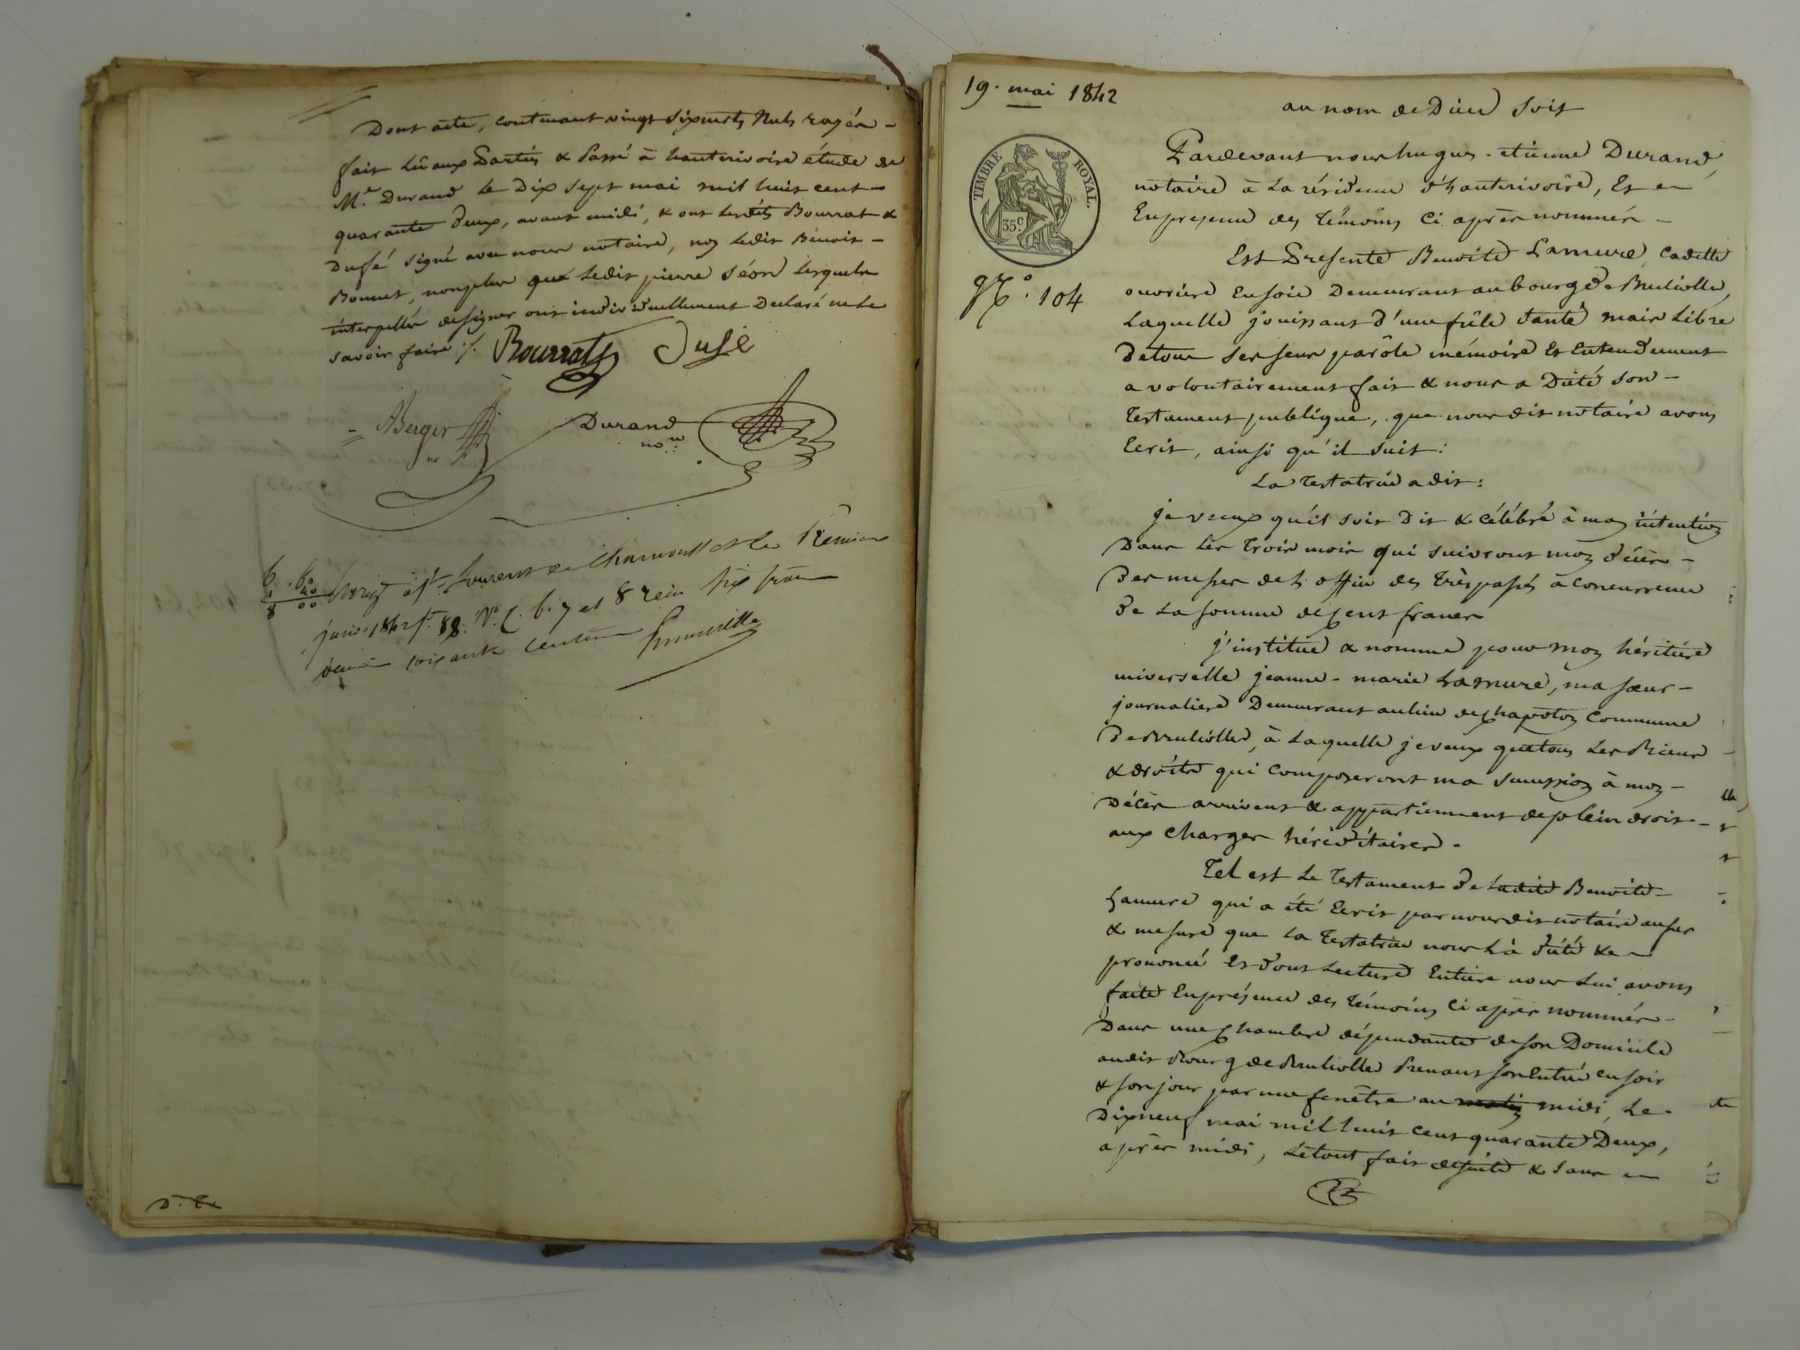 Dont acte, contenant vingt six mots nuls rayés -
fait lû aux Parties & Passé à hauterivoire étude de
Me. Durand le Dix sept mai mil huit cent -
quarante deux, avant midi, & ont lesdits Bourrat &
Dusé signé avec nous notaire, non ledit Benoit -
Bonnet, non plus que ledit pierre Séon lesquels
interpellés de signer ont individuellement Declaré ne le
savoir faire ./.
Bourrat Jusé
ABerger
Durand
nore
6.60
60
8 00
Enrgt à St. Laurent de Chamousset le Premier
juin 1842 fo. 88. Vo. C. 6. 7 et 8 reçu six francs
decime soixante centimes
D. L.
19. mai 1842
TIMBRE ROYAL.
35c.
No. 104
au nom de Dieu soit
Pardevant nous hugues - etienne Durand,
notaire à la résidence d'hauterivoire, Et -
En presence des témoins ci après nommés -
Est Presente Benoite Lamure, Cadette
ouvriere En soie Demeurant au bourg de Brullioles,
Laquelle jouissant d'une frêle santé mais libre
de tous ses sens parôle mémoire Et Entendement
a volontairement fait & nous a Dicté son -
Testament publique, que nous dit notaire avons
Ecrit, ainsi qu'il suit :
La Testatrice a dit :
je veux qu'il soit Dit & célébré à mon intention
Dans les trois mois qui suivront mon décès -
Des messes de l'office des trèspassés à concurrence
de la somme de Cent francs
j'institue & nomme pour mon héritière
universelle jeanne - marie Lamure, ma sœur -
journaliere Demeurant au lieu de Chapoton Commune
de Brullioles, à laquelle je veux que tous les Biens
& droits qui composeront ma succession à mon -
Décès arrivent & appartiennent de plein droit -
aux charges héréditaires.
Tel est le testament de ladite Benoite -
Lamure qui a été Ecrit par nous dit notaire au fur
& mesure que la Testatrice nous l'à dicté & -
prononcé Et dont lecture Entiere nous lui avons
faite En présence des témoins ci après nommés -
Dans une Chambre dépendante de son Domicile
audit Bourg de Brullioles Prenant son Entrée au soir
& son jour par une fenêtre au matin midi, Le -
Dix neuf mai mil huit cent quarante Deux,
après midi, Le tout fait de suite & sans -